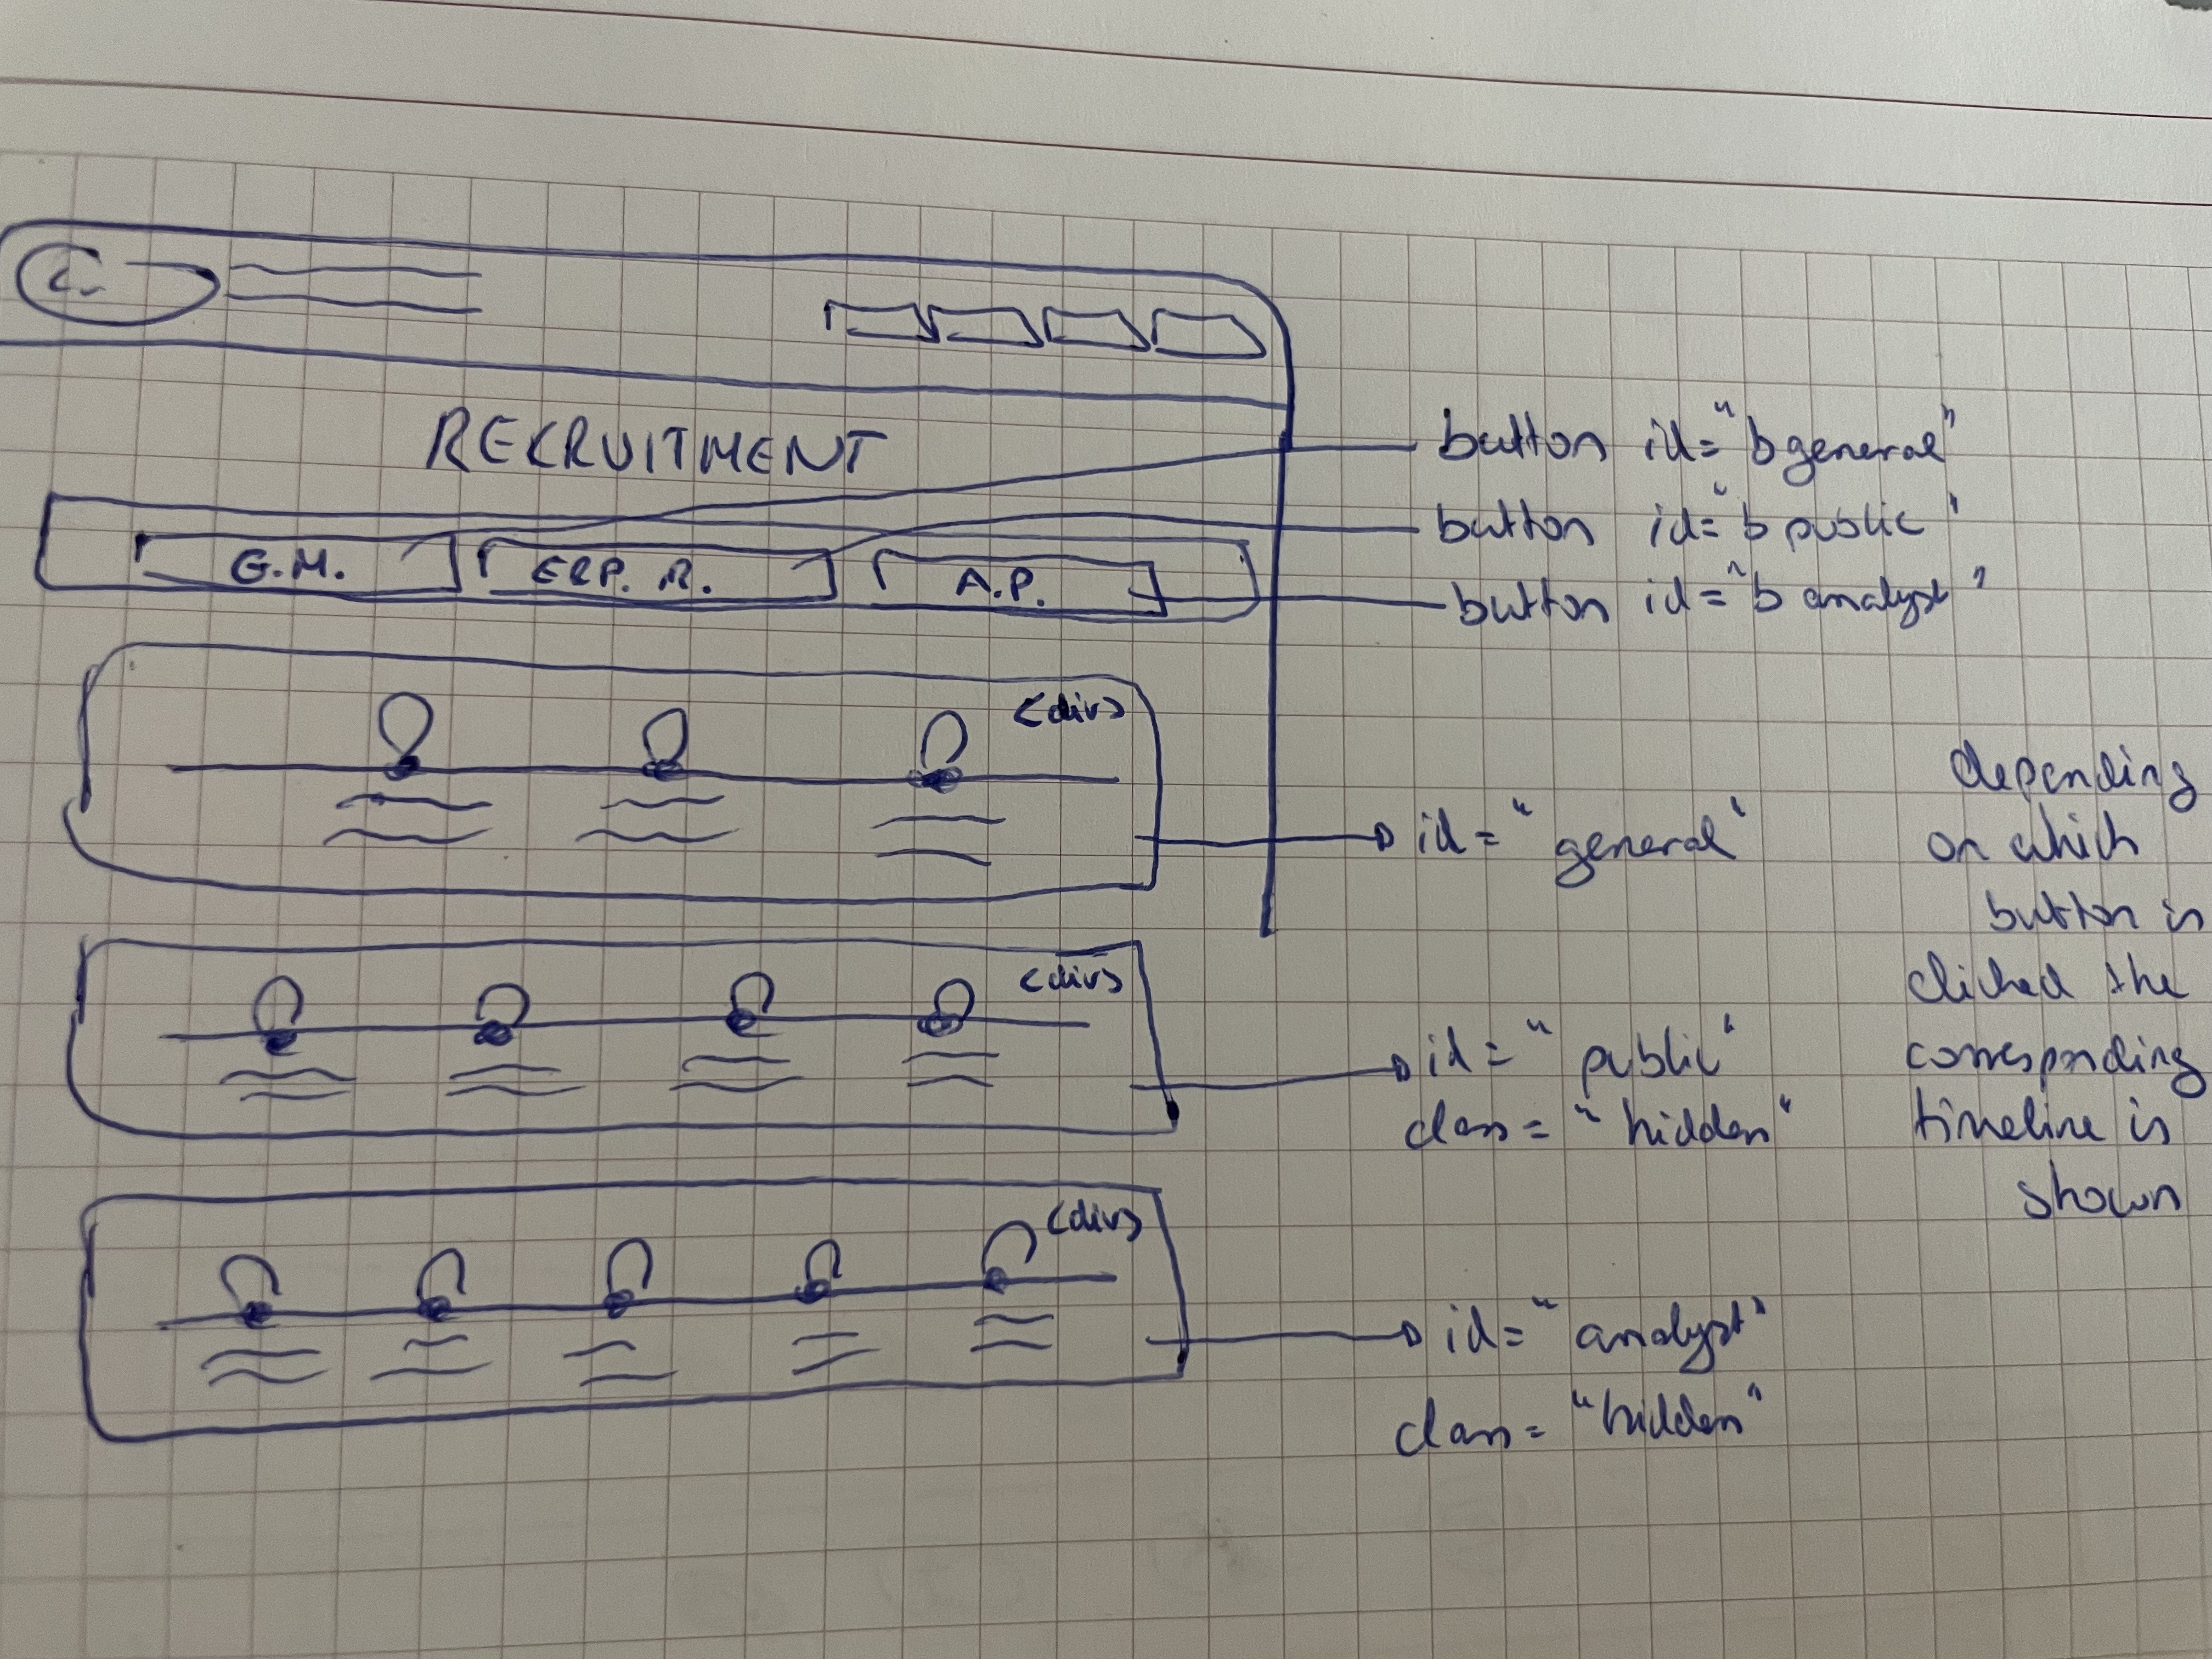 REKRUITMENT
button id="bgeneral"
button id="bpublic"
button id="banalyst"
G.M. ERP. R. A.P.
<div>
id="general"
<div>
id="public"
class="hidden"
<div>
id="analyst"
class="hidden"
depending
on which
button is
clicked the
corresponding
timeline is
shown